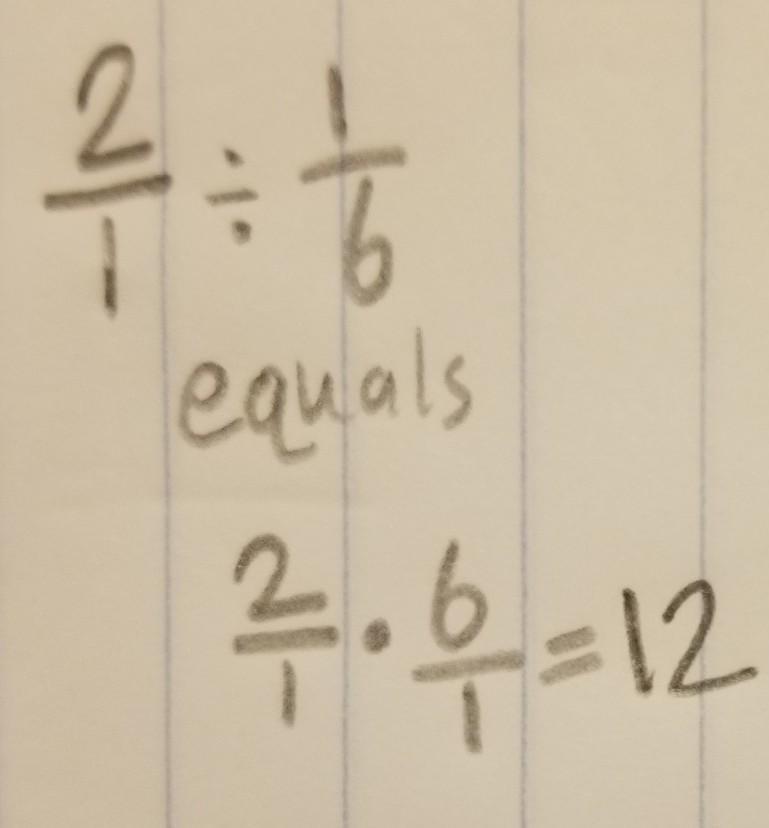 2/1 ÷ 1/6
equals
2/1 · 6/1 = 12